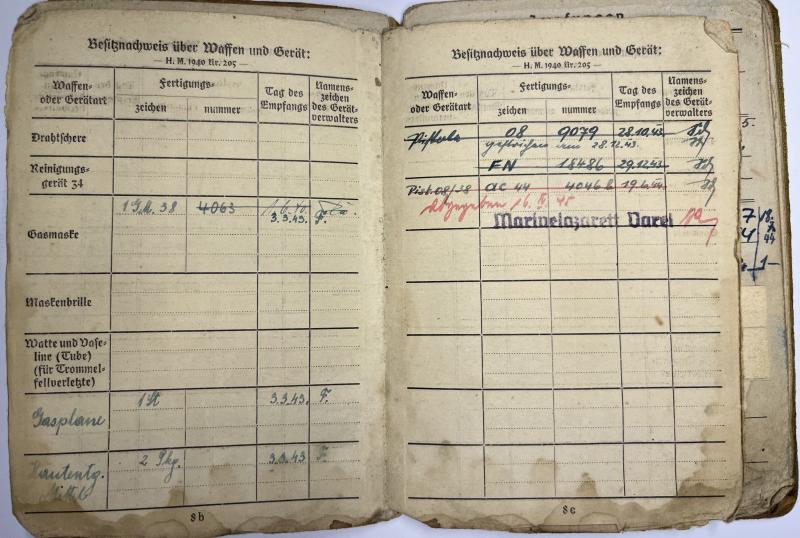 Besitznachweis über Waffen und Gerät:
— H. M. 1940 Nr. 205 —
Waffen- oder Gerätart
Fertigungs-
zeichen
nummer
Tag des Empfangs
Namens-zeichen des Gerät-verwalters
Drahtschere
Reinigungs-gerät 34
Gasmaske
1 G.M. 38
4063
3.3.43.
F.
Maskenbrille
Watte und Vase-line (Tube) (für Trommel-fellverletzte)
Gasplane
1 St
3.3.43.
F.
Hautentg. Mittel
2 Pkg.
3.3.43
F.
8b
Besitznachweis über Waffen und Gerät:
— H. M. 1940 Nr. 205 —
Waffen- oder Gerätart
Fertigungs-
zeichen
nummer
Tag des Empfangs
Namens-zeichen des Gerät-verwalters
Pistole 08 9079 28.10.43
gestrichen am 28.12.43.
FN 18486 29.12.43
Pist. 08/38 ac 44 4046b 19.6.44
Abgegeben 16. IV. 45
Marinelazarett Varel
8c